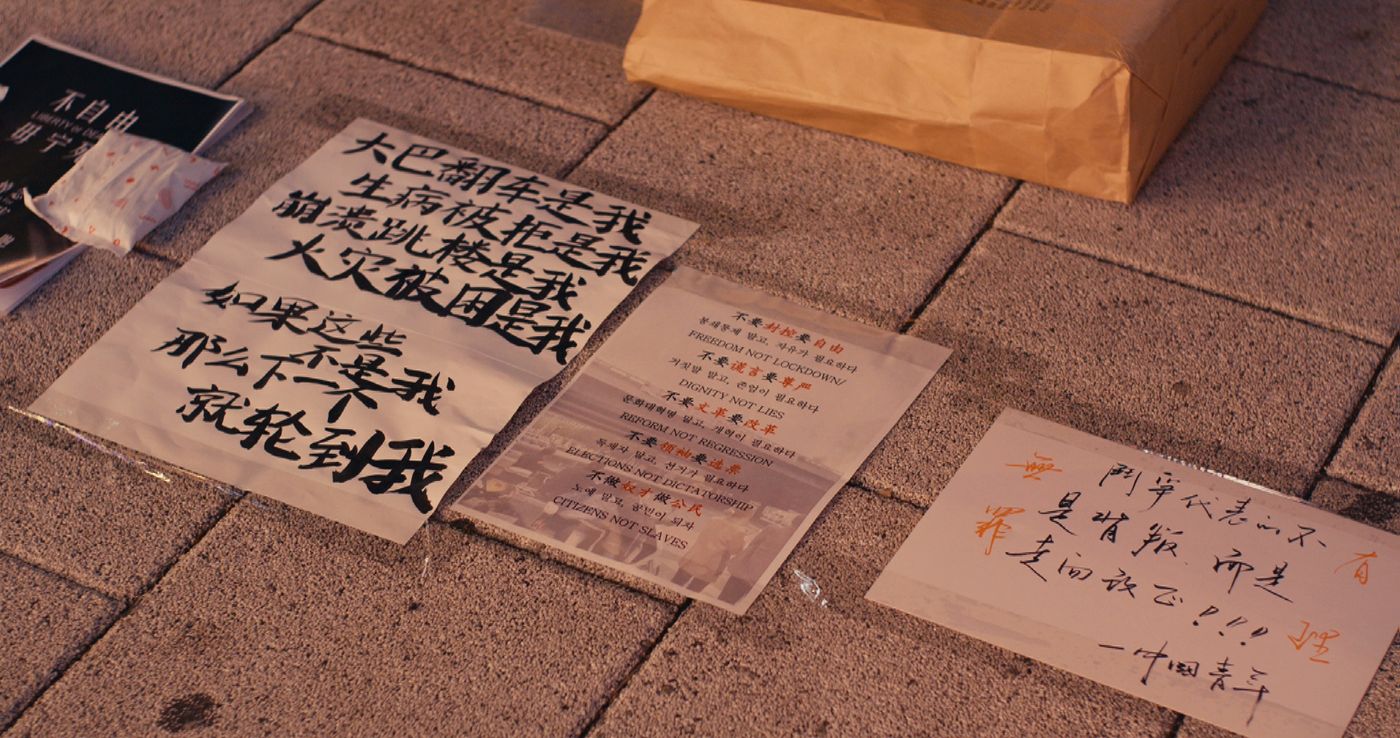 不自由
LIBERTY OR DE
毋宁
大巴翻车是我
生病被拒是我
崩溃跳楼是我
火灾被困是我
如果这些
不是我
那么下一个
就轮到我
不要封控要自由
봉쇄통제 말고, 자유가 필요하다
FREEDOM NOT LOCKDOWN/
不要谎言要尊严
거짓말 말고, 존엄이 필요하다
DIGNITY NOT LIES
不要文革要改革
문화대혁명 말고, 개혁이 필요하다
REFORM NOT REGRESSION
不要领袖要选票
독재자 말고, 선거가 필요하다
ELECTIONS NOT DICTATORSHIP
不做奴才做公民
노예 말고, 공민이 되자
CITIZENS NOT SLAVES
無罪
鬥争代表的不
是背叛 而是
走向改正!!!
一中國青年
有理